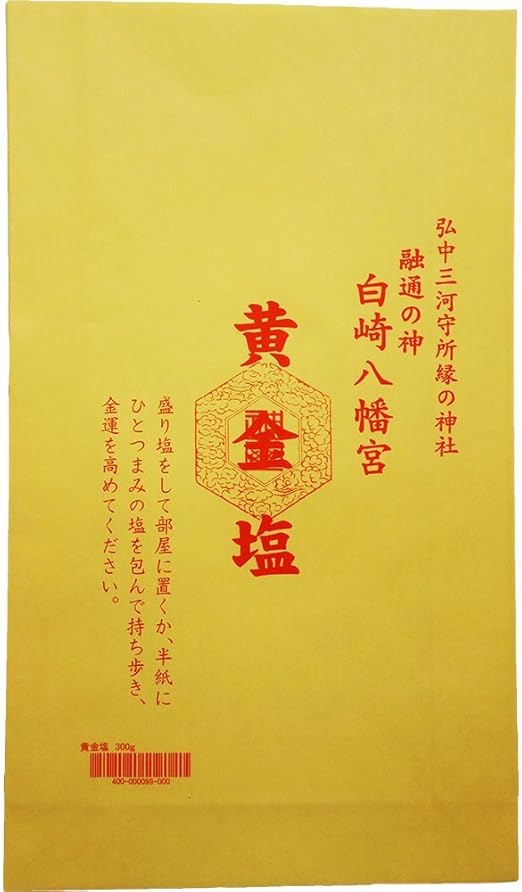 弘中三河守所縁の神社
融通の神
白崎八幡宮
黄金塩
盛り塩をして部屋に置くか、半紙に
ひとつまみの塩を包んで持ち歩き、
金運を高めてください。
黄金塩 300g
400-000099-000